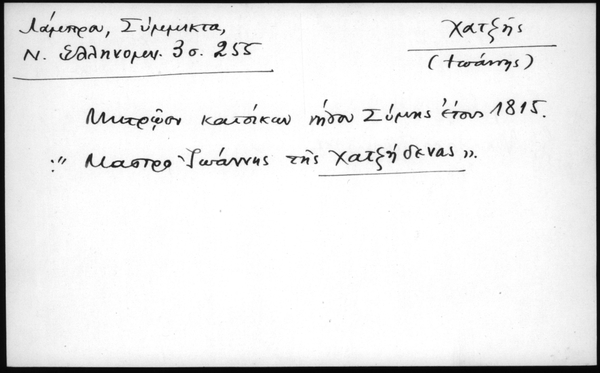 Λάμπρου, Σύμμικτα,
Ν. Ελληνομν. 3 σ. 255
Χατζῆς
(Ἰωάννης)
Μητρῷον κατοίκων νήσου Σύμης ἔτους 1815.
:" Μαστρο Ἰωάννης τῆς Χατζήδενας".